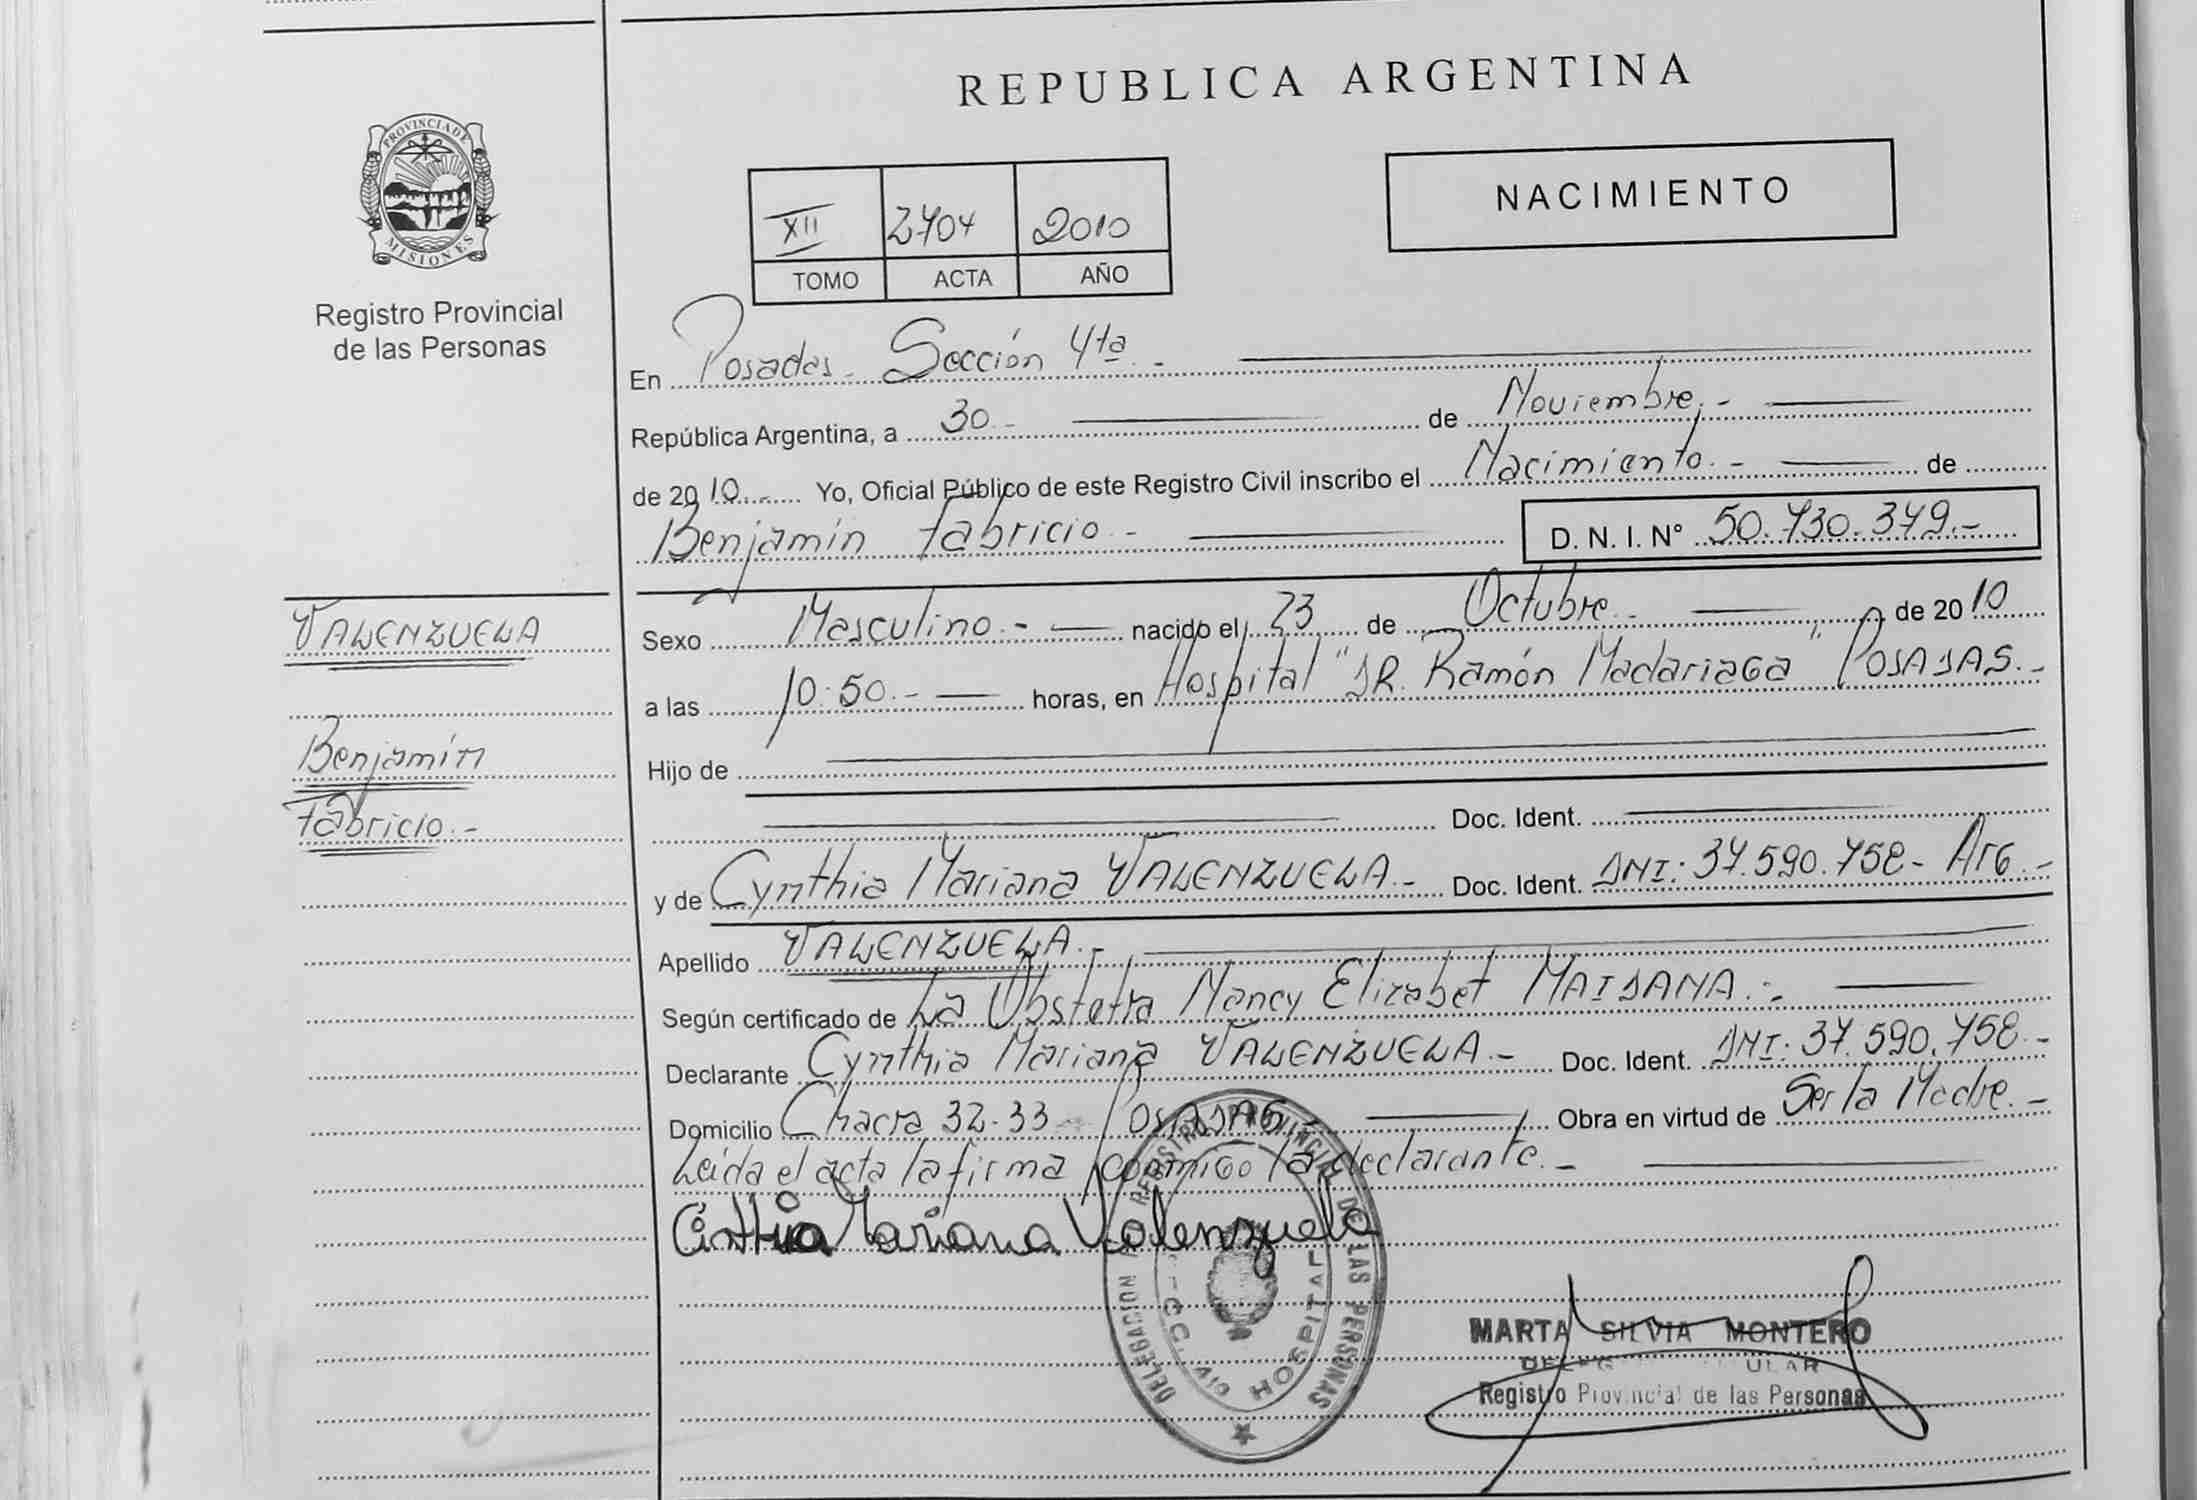 REPUBLICA ARGENTINA
PROVINCIA DE MISIONES
Registro Provincial
de las Personas
NACIMIENTO
XII 2704 2010
TOMO ACTA AÑO
En Posadas - Sección 4ta.-
República Argentina, a 30.- de Noviembre.-
de 2010.- Yo, Oficial Público de este Registro Civil inscribo el Nacimiento.- de
Benjamín Fabricio.- D. N. I. Nº 50.730.379.-
VALENZUELA
Benjamín
Fabricio.-
Sexo Masculino.- nacido el 23 de Octubre.- de 2010
a las 10:50.- horas, en Hospital "DR. Ramón Madariaga" POSADAS.-
Hijo de
Doc. Ident.
y de Cynthia Mariana VALENZUELA.- Doc. Ident. DNI: 37.590.758- Arg.-
Apellido VALENZUELA.-
Según certificado de La Obstetra Nancy Elizabet MAIDANA.-
Declarante Cynthia Mariana VALENZUELA.- Doc. Ident. DNI: 37.590.758.-
Domicilio Chacra 32-33- POSADAS.- Obra en virtud de Ser la Madre.-
Leída el acta la firma conmigo la declarante.-
Cinthia Mariana Valenzuela
REGISTRO PROVINCIAL DE LAS PERSONAS
DELEGACION
HOSPITAL
MARTA SILVIA MONTERO
Registro Provincial de las Personas